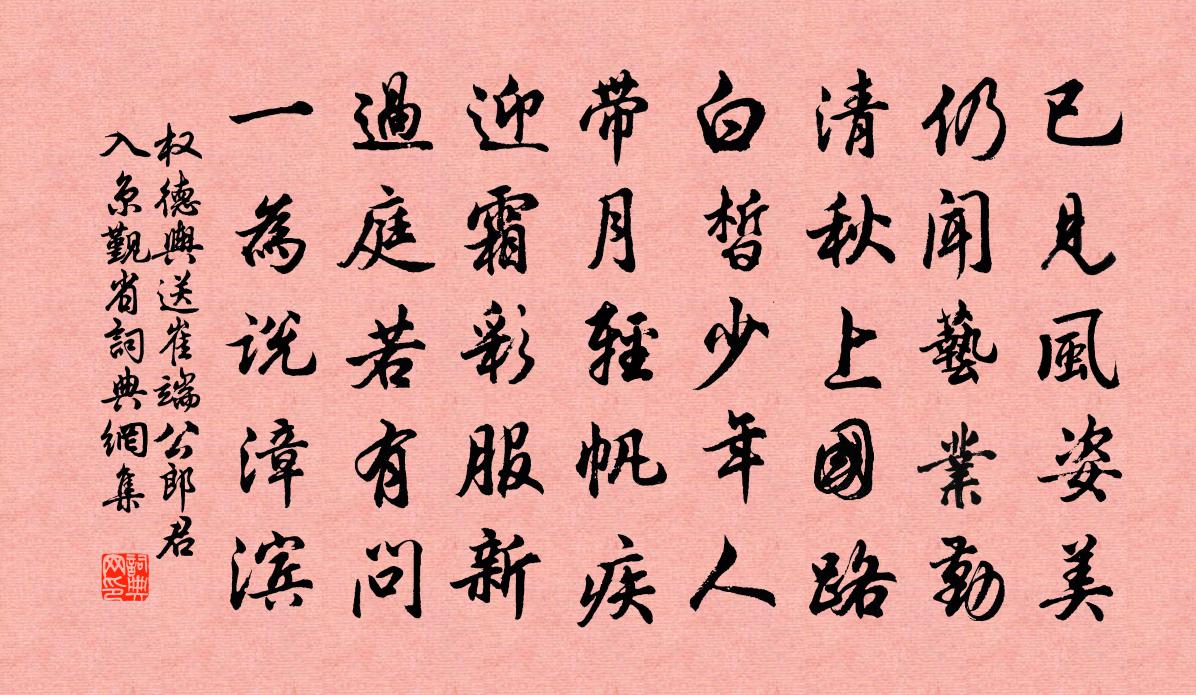 已見風姿美
仍聞藝業勤
清秋上國路
白皙少年人
带月輕帆疾
迎霜彩服新
過庭若有問
一為説漳滨
权德輿送崔端公郎君
入京觐省詞典網集
詞典網印